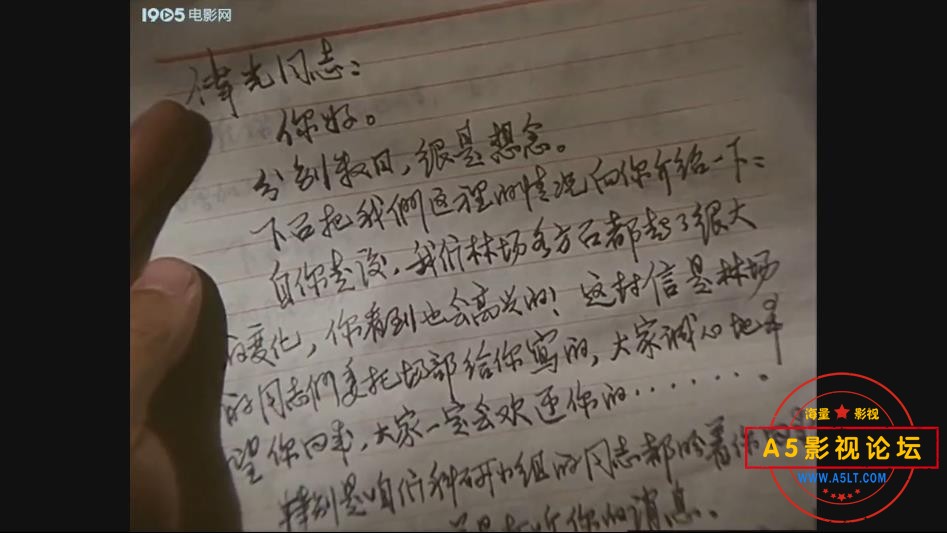 1905电影网
伟光同志：
你好。
分别数日，很是想念。
下面把我們这里的情况向你介绍一下：
自你走後，我们林场各方面都起了很大
的变化，你看到也会高兴的！这封信是林场
的同志們委托场部给你写的，大家诚心地希
望你回来，大家一定会欢迎你的·······。
特别是咱们科研小组的同志都盼着你
你的消息。
海量 影视
A5影视论坛
WWW.A5LT.COM